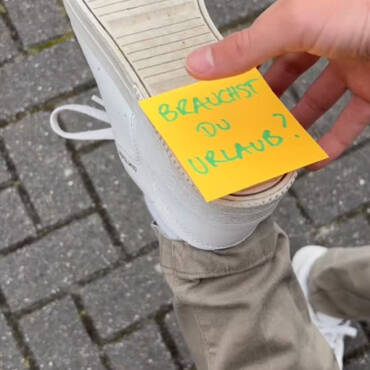 BRAUCHST
DU
URLAUB?